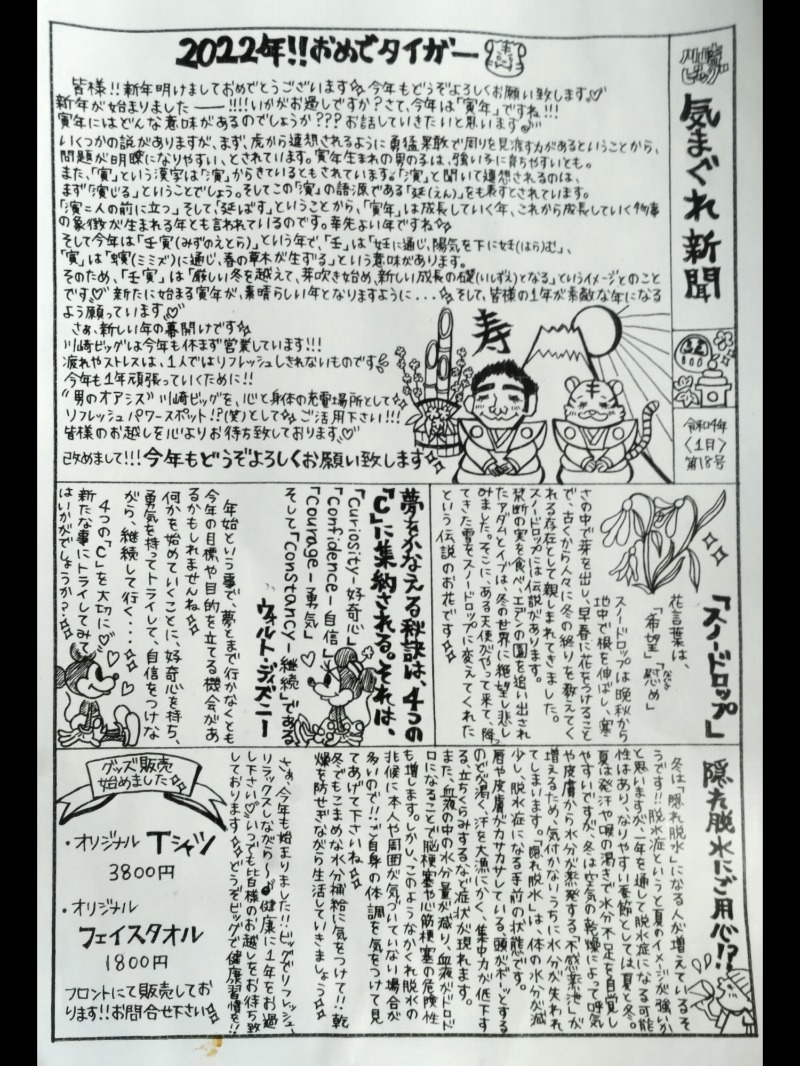 2022年!!おめでタイガー
川崎ビッグ
気まぐれ新聞
令和4年
〈1月〉
第18号
皆様!!新年明けましておめでとうございます☆今年もどうぞよろしくお願い致します♡
新年が始まりました――!!!!いかがお過しですか?さて、今年は「寅年」ですね!!!
寅年にはどんな意味があるのでしょうか???お話していきたいと思います
いくつかの説がありますが、まず、虎から連想されるように勇猛果敢で周りを見渡す力があるということから、
問題が明瞭になりやすい、とされています。寅年生まれの男の子は、強い子に育ちやすいとも。
また、「寅」という漢字は「演」からきているともされています。「演」と聞いて連想されるのは、
まず「演じる」ということでしょう。そしてこの「演」の語源である「延(えん)」をも表すとされています。
「演=人の前に立つ」そして、「延ばす」ということから、「寅年」は成長していく年、これから成長していく物事
の象徴が生まれる年とも言われているのです。幸先よい年ですね☆
そして今年は「壬寅(みずのえとら)」という年で、「壬」は「妊に通じ、陽気を下に妊(はら)む」、
「寅」は「螾(ミミズ)に通じ、春の草木が生ずる」という意味があります。
そのため、「壬寅」は「厳しい冬を越えて、芽吹き始め、新しい成長の礎(いしずえ)となる」というイメージとのこと
です♡新たに始まる寅年が、素晴らしい年となりますように...☆そして、皆様の1年が素敵な年になる
よう願っています♡
さぁ、新しい年の幕開けです☆
川崎ビッグは今年も休まず営業しています!!!
疲れやストレスは、1人ではリフレッシュしきれないものです
今年も1年頑張っていくために!!
"男のオアシス"川崎ビッグを、心と身体の充電場所として☆
リフレッシュパワースポット!?(笑)として☆ご活用下さい!!!
皆様のお越しを心よりお待ち致しております♡
改めまして!!!今年もどうぞよろしくお願い致します☆
寿
「スノードロップ」
花言葉は、
「希望」「慰め」
なぐさ
スノードロップは晩秋から
地中で根を伸ばし、寒
さの中で芽を出し、早春に花をつけること
で、古くから人々に冬の終りを教えてく
れる存在として親しまれてきました。
スノードロップには伝説があります。
禁断の実を食べ、エデンの園を追い出され
たアダムとイブは、冬の世界に絶望し悲し
みました。そこに、ある天使がやって来て、降っ
てきた雪をスノードロップに変えてくれた
という伝説のお花です☆
夢をかなえる秘訣は、4つの
「C」に集約される。それは、
「Curiosity-好奇心」
「Confidence-自信」
「Courage-勇気」
そして「Constancy-継続」である
ウォルト・ディズニー
年始という事で、夢とまで行かなくとも
今年の目標や目的を立てる機会があ
るかもしれませんね☆
何かを始めていくことに、好奇心を持ち、
勇気を持ってトライして、自信をつけな
がら、継続して行く...☆
4つの「C」を大切に♡
新たな事にトライしてみて
はいかがでしょうか?☆
隠れ脱水にご用心!?
冬は「隠れ脱水」になる人が増えているそ
うです!!脱水症というと夏のイメージが強いか
と思いますが、一年を通して脱水症になる可能
性はあり、なりやすい季節としては、夏と冬。
夏は発汗や喉の渇きで水分不足を自覚し
やすいですが、冬は空気の乾燥によって呼気
や皮膚から水分が蒸発する「不感蒸泄」が
増えるため、気付かないうちに水分が失われ
てしまいます。「隠れ脱水」は、体の水分が減
少し、脱水症になる手前の状態です。
唇や皮膚がカサカサしている、頭がボーッとする
のどが渇く、汗を大漁にかく、集中力が低下す
る、立ちくらみするなど症状が現れます。
また、血液の中の水分量が減り、血液がドロド
ロになることで脳梗塞や心筋梗塞の危険性
も増します。しかし、このようなかくれ脱水の
兆候に本人や周囲が気づいていない場合が
多いので!!ご自身の体調を気をつけて見
てあげて下さいね☆
冬でもこまめな水分補給に気をつけて!!乾
燥を防せぎながら生活していきましょう☆
さぁ、今年も始まりました!!ビッグでリフレッシュ、
リラックスしながら〜♪健康に1年をお過
し下さい♡いつでも皆様のお越しをお待ち致
しております☆どうぞビッグで健康習慣を!!
グッズ販売
始めました☆
・オリジナル Tシャツ
3800円
・オリジナル
フェイスタオル
1800円
フロントにて販売してお
ります!!お問合せ下さい☆